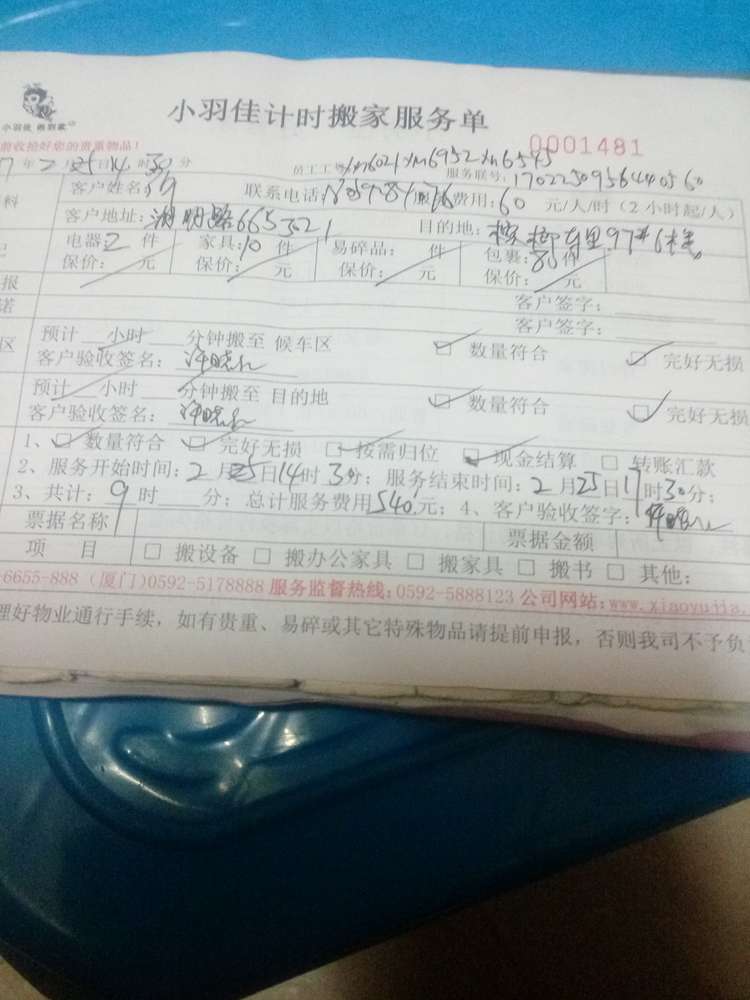 小羽佳计时搬家服务单
小羽佳
0001481
前收拾好您的贵重物品！
7年2月25日14时30分 员工工号：xm6021 xm6952 xm6545
服务联号：1702250956440560
料 客户姓名： 联系电话： 费用：60元/人/时（2小时起/人）
客户地址：湖明路665 目的地： 97#6楼
电器：2件 家具：10件 易碎品： 件 包裹：80件
保价： 元 保价： 元 保价： 元 保价： 元
报 客户签字：
诺 客户签字：
区 预计 小时 分钟搬至 候车区 ☑ 数量符合 ☑ 完好无损
客户验收签名：
预计 小时 分钟搬至 目的地 ☑ 数量符合 ☑ 完好无损
客户验收签名：
1、☑ 数量符合 ☑ 完好无损 ☑ 按需归位 ☑ 现金结算 □ 转账汇款
2、服务开始时间：2月25日14时3分；服务结束时间：2月25日17时30分；
3、共计：9时 分；总计服务费用540元；4、客户验收签字：
票据名称 票据金额
项 目 □ 搬设备 □ 搬办公家具 □ 搬家具 □ 搬书 □ 其他：
-6655-888（厦门）0592-5178888 服务监督热线：0592-5888123 公司网站：www.xiaoyujia.
理好物业通行手续，如有贵重、易碎或其它特殊物品请提前申报，否则我司不予负